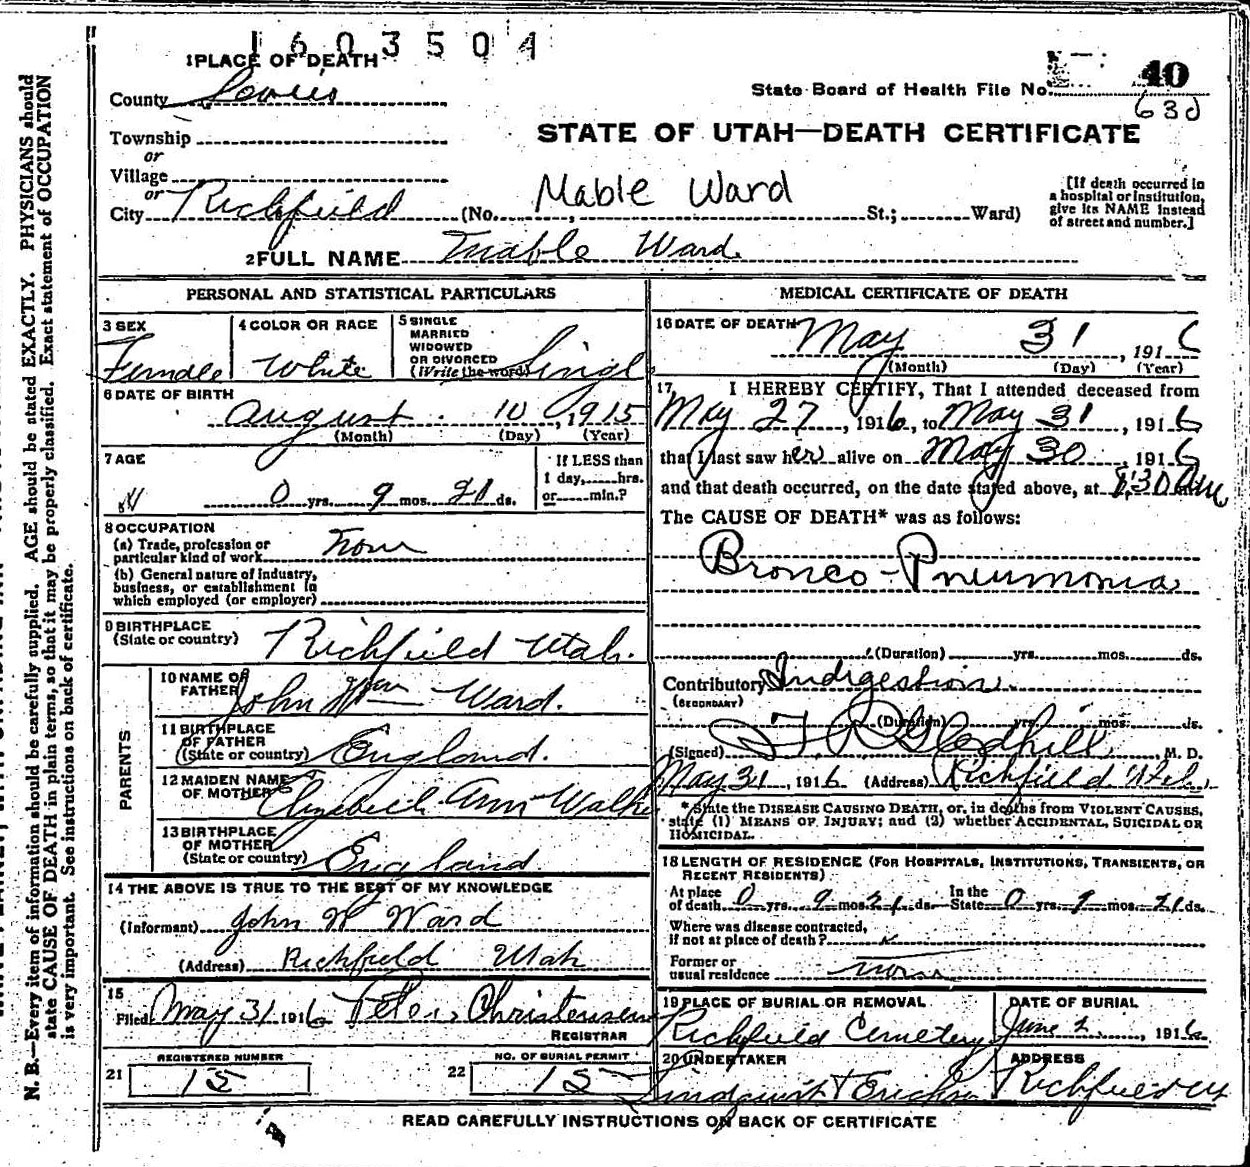 1603504
1 PLACE OF DEATH
County Sevier
State Board of Health File No. 40
630
Township
or
Village
or
STATE OF UTAH—DEATH CERTIFICATE
Mable Ward
City Richfield (No. , St.; Ward)
[If death occurred in
a hospital or institution,
give its NAME instead
of street and number.]
2 FULL NAME Mable Ward
PERSONAL AND STATISTICAL PARTICULARS
3 SEX
Female
4 COLOR OR RACE
White
5 SINGLE
MARRIED
WIDOWED
OR DIVORCED
(Write the word) Singl
6 DATE OF BIRTH
August 10, 1915
(Month) (Day) (Year)
7 AGE
0 yrs. 9 mos. 21 ds.
If LESS than
1 day, hrs.
or min.?
8 OCCUPATION
(a) Trade, profession or
particular kind of work None
(b) General nature of industry,
business, or establishment in
which employed (or employer)
9 BIRTHPLACE
(State or country) Richfield Utah.
PARENTS
10 NAME OF
FATHER John Wm Ward.
11 BIRTHPLACE
OF FATHER
(State or country) England.
12 MAIDEN NAME
OF MOTHER Elizabeth Ann Walker
13 BIRTHPLACE
OF MOTHER
(State or country) England
14 THE ABOVE IS TRUE TO THE BEST OF MY KNOWLEDGE
(Informant) John W Ward
(Address) Richfield Utah
15
Filed May 31 1916 Peter Christensen
REGISTRAR
REGISTERED NUMBER
21 15
NO. OF BURIAL PERMIT
22 15
MEDICAL CERTIFICATE OF DEATH
16 DATE OF DEATH
May 31, 1916
(Month) (Day) (Year)
17 I HEREBY CERTIFY, That I attended deceased from
May 27, 1916, to May 31, 1916
that I last saw her alive on May 30, 1916
and that death occurred, on the date stated above, at :30 am
The CAUSE OF DEATH* was as follows:
Bronco-Pneumonia
(Duration) yrs. mos. ds.
Contributory Indigestion
(SECONDARY)
(Duration) yrs. mos. ds.
(Signed) T. R. Gledhill, M. D.
May 31, 1916 (Address) Richfield Utah
*State the DISEASE CAUSING DEATH, or, in deaths from VIOLENT CAUSES,
state (1) MEANS OF INJURY; and (2) whether ACCIDENTAL, SUICIDAL OR
HOMICIDAL.
18 LENGTH OF RESIDENCE (FOR HOSPITALS, INSTITUTIONS, TRANSIENTS, OR
RECENT RESIDENTS)
At place
of death 0 yrs. 9 mos. 21 ds.
In the
State 0 yrs. 9 mos. 21 ds.
Where was disease contracted,
if not at place of death?
Former or
usual residence none
19 PLACE OF BURIAL OR REMOVAL
Richfield Cemetery
DATE OF BURIAL
June 2, 1916
20 UNDERTAKER
Lindquist & Erickson
ADDRESS
Richfield Ut
READ CAREFULLY INSTRUCTIONS ON BACK OF CERTIFICATE
N. B.—Every item of information should be carefully supplied. AGE should be stated EXACTLY. PHYSICIANS should
state CAUSE OF DEATH in plain terms, so that it may be properly classified. Exact statement of OCCUPATION
is very important. See instructions on back of certificate.